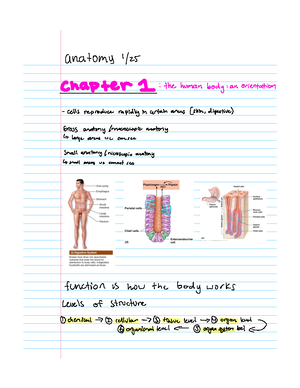 anatomy 1/25
Chapter 1: the human body: an orientation
- cells reproduce rapidly in certain areas (skin, digestive)
Gross anatomy / macroscopic anatomy
↳ large areas we can see
Small anatomy / microscopic anatomy
↳ small areas we cannot see
Oral cavity
Esophagus
Parietal cells
Chief cells
Enteroendocrine cell
function is how the body works
Levels of structure
① chemical → ② cellular → ③ tissue level → ④ organ level
⑥ organismal level ← ⑤ organ system level